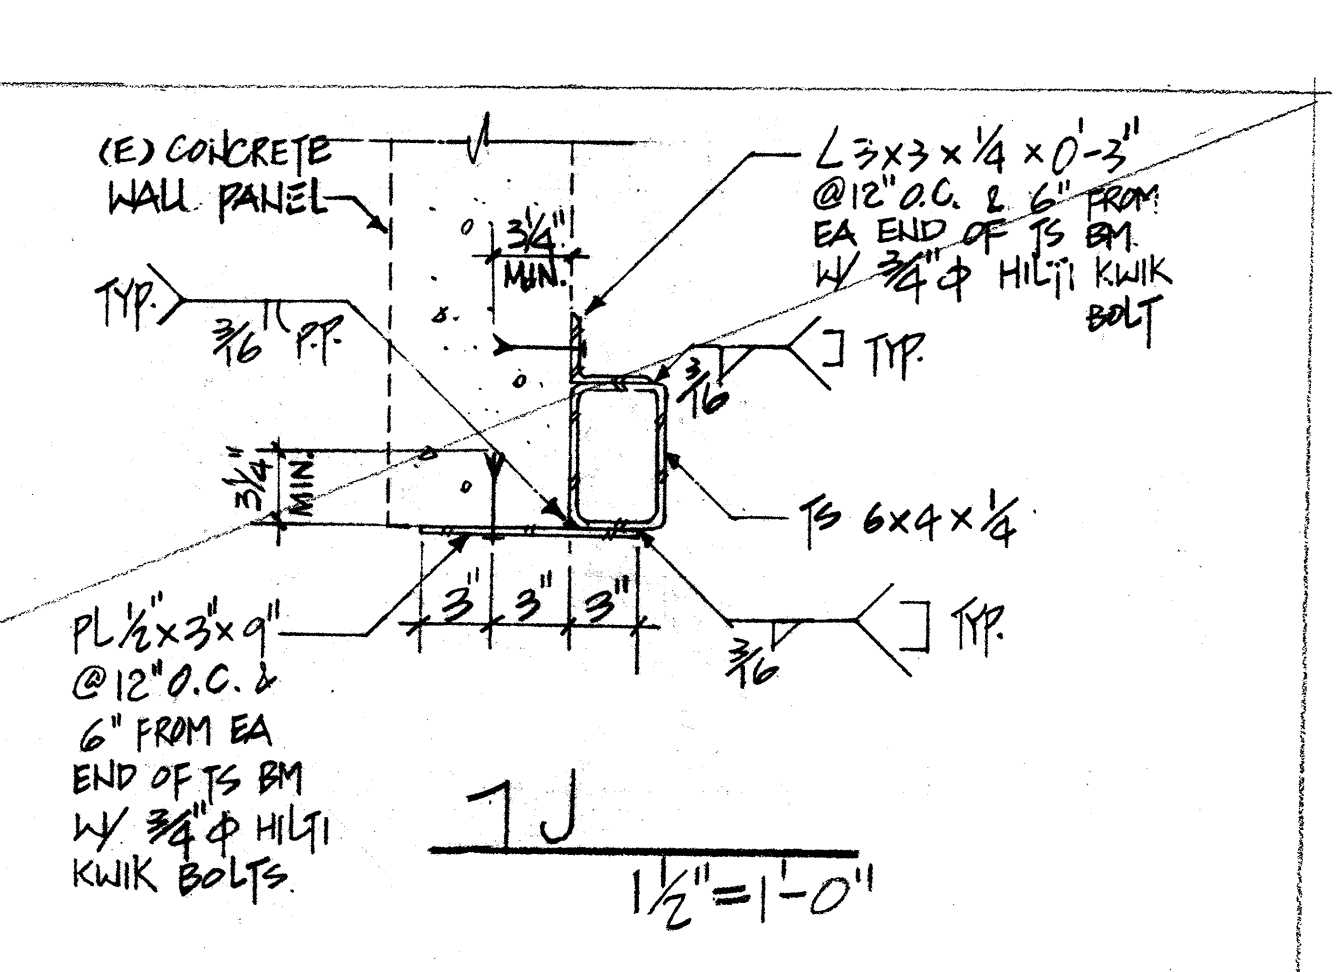 (E) CONCRETE
WALL PANEL
L 3 x 3 x 1/4 x 0'-3"
@ 12" O.C. & 6" FROM
EA END OF TS BM.
W/ 3/4" Φ HILTI KWIK
BOLT
3 1/4"
MIN.
TYP.
3/16 P.P.
3/16
TYP.
3 1/4"
MIN.
TS 6 x 4 x 1/4
3" 3" 3"
3/16
TYP.
PL 1/2" x 3" x 9"
@ 12" O.C. &
6" FROM EA
END OF TS BM
W/ 3/4" Φ HILTI
KWIK BOLTS.
1J
1 1/2" = 1'-0"